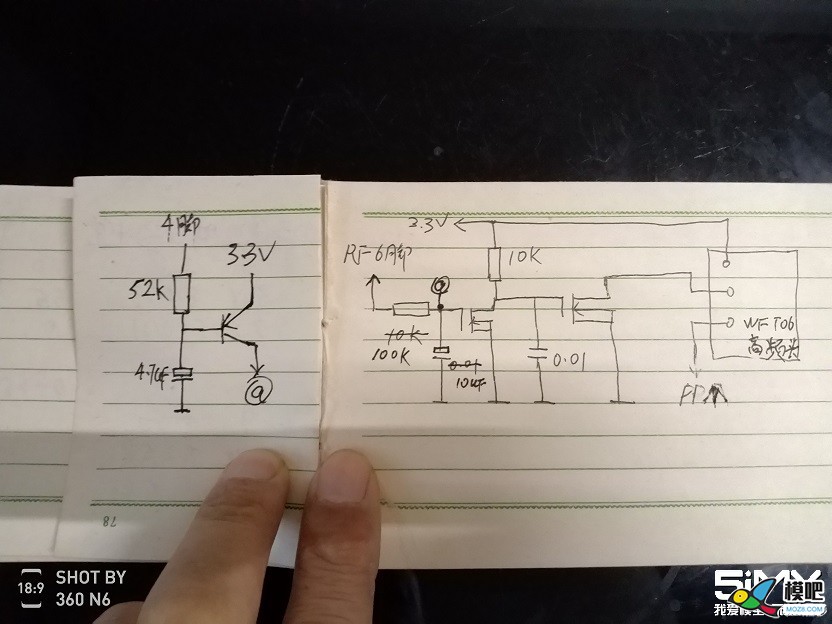 4脚
52K
3.3V
4.7uF
@
3.3V
RF-6脚
10K
@
10K
100K
0.01
10uF
0.01
WFT06
高频头
78
18:9
SHOT BY
360 N6
5iMX
我爱模型
模吧
MOZ8.COM